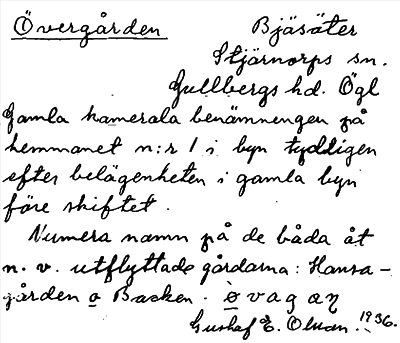 Övergården Bjäsäter
Stjärnorps sn.
Gullbergs hd. Ögl
Gamla kamerala benämningen på
hemmanet n:r 1 i byn tydligen
efter belägenheten i gamla byn
före skiftet.
Numera namn på de båda åt
n. v. utflyttade gårdarna: Hansa-
gården o Backen. øvagaŋ
Gustaf E. Olsson. 1936.